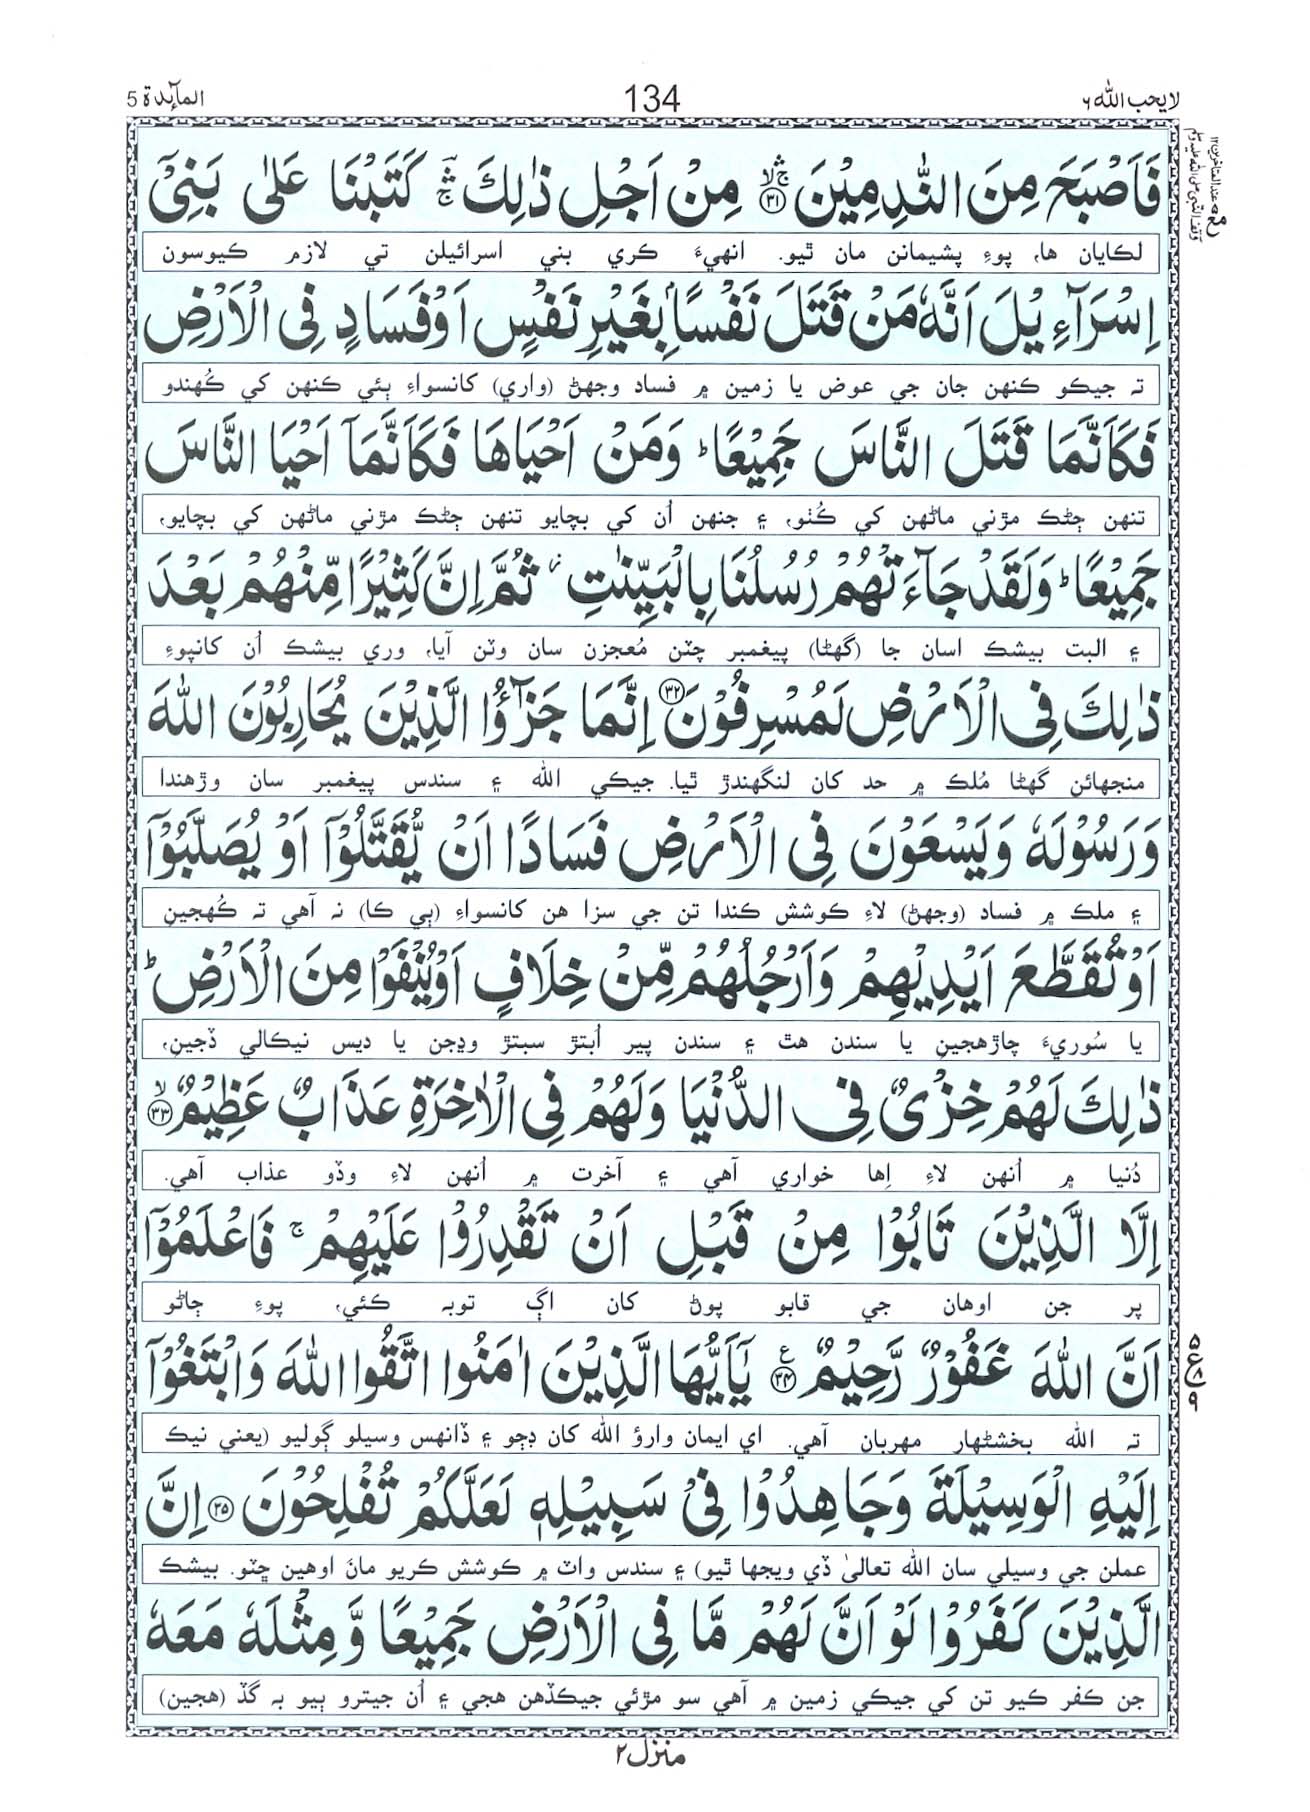 لا يحب الله ٦
134
المآئدة 5
فَاَصْبَحَ مِنَ النّٰدِمِيْنَ ۛۚۙ ٣١ مِنْ اَجْلِ ذٰلِكَ ۛۚ كَتَبْنَا عَلٰى بَنِيْٓ
لڪايان ها، پوءِ پشيمانن مان ٿيو. انهيءَ ڪري بني اسرائيلن تي لازم ڪيوسون
اِسْرَآءِيْلَ اَنَّهٗ مَنْ قَتَلَ نَفْسًاۢ بِغَيْرِ نَفْسٍ اَوْ فَسَادٍ فِى الْاَرْضِ
ته جيڪو ڪنهن جان جي عوض يا زمين ۾ فساد وجهڻ (واري) کانسواءِ ٻئي ڪنهن کي ڪُهندو
فَكَاَنَّمَا قَتَلَ النَّاسَ جَمِيْعًا ؕ وَمَنْ اَحْيَاهَا فَكَاَنَّمَآ اَحْيَا النَّاسَ
تنهن ڄڻڪ مڙني ماڻهن کي ڪُٺو، ۽ جنهن اُن کي بچايو تنهن ڄڻڪ مڙني ماڻهن کي بچايو،
جَمِيْعًا ؕ وَلَقَدْ جَآءَتْهُمْ رُسُلُنَا بِالْبَيِّنٰتِ ز ثُمَّ اِنَّ كَثِيْرًا مِّنْهُمْ بَعْدَ
۽ البت بيشڪ اسان جا (گهڻا) پيغمبر چٽن مُعجزن سان وٽن آيا، وري بيشڪ اُن کانپوءِ
ذٰلِكَ فِى الْاَرْضِ لَمُسْرِفُوْنَ ٣٢ اِنَّمَا جَزٰٓؤُا الَّذِيْنَ يُحَارِبُوْنَ اللهَ
منجهائن گهڻا مُلڪ ۾ حد کان لنگهندڙ ٿيا. جيڪي الله ۽ سندس پيغمبر سان وڙهندا
وَرَسُوْلَهٗ وَيَسْعَوْنَ فِى الْاَرْضِ فَسَادًا اَنْ يُّقَتَّلُوْٓا اَوْ يُصَلَّبُوْٓا
۽ ملڪ ۾ فساد (وجهڻ) لاءِ ڪوشش ڪندا تن جي سزا هن کانسواءِ (ٻي ڪا) نه آهي ته ڪُهجين
اَوْ تُقَطَّعَ اَيْدِيْهِمْ وَاَرْجُلُهُمْ مِّنْ خِلَافٍ اَوْ يُنْفَوْا مِنَ الْاَرْضِ ؕ
يا سُوريءَ چاڙهجينِ يا سندن هٿ ۽ سندن پير اُبتڙ سبتڙ وڍجن يا ديس نيڪالي ڏجينِ،
ذٰلِكَ لَهُمْ خِزْيٌ فِى الدُّنْيَا وَلَهُمْ فِى الْاٰخِرَةِ عَذَابٌ عَظِيْمٌ ۙ ٣٣
دُنيا ۾ اُنهن لاءِ اِها خواري آهي ۽ آخرت ۾ اُنهن لاءِ وڏو عذاب آهي.
اِلَّا الَّذِيْنَ تَابُوْا مِنْ قَبْلِ اَنْ تَقْدِرُوْا عَلَيْهِمْ ۚ فَاعْلَمُوْٓا
پر جن اوهان جي قابو پوڻ کان اڳ توبه ڪئي، پوءِ ڄاڻو
اَنَّ اللهَ غَفُوْرٌ رَّحِيْمٌ ع ٣٤ يٰٓاَيُّهَا الَّذِيْنَ اٰمَنُوا اتَّقُوا اللهَ وَابْتَغُوْٓا
ته الله بخشڻهار مهربان آهي. اي ايمان وارؤ الله کان ڊڄو ۽ ڏانهس وسيلو ڳوليو (يعني نيڪ
اِلَيْهِ الْوَسِيْلَةَ وَجَاهِدُوْا فِيْ سَبِيْلِهٖ لَعَلَّكُمْ تُفْلِحُوْنَ ٣٥ اِنَّ
عملن جي وسيلي سان الله تعاليٰ ڏي ويجها ٿيو) ۽ سندس واٽ ۾ ڪوشش ڪريو مانَ اوهين ڇٽو. بيشڪ
الَّذِيْنَ كَفَرُوْا لَوْ اَنَّ لَهُمْ مَّا فِى الْاَرْضِ جَمِيْعًا وَّمِثْلَهٗ مَعَهٗ
جن ڪفر ڪيو تن کي جيڪي زمين ۾ آهي سو مڙئي جيڪڏهن هجي ۽ اُن جيترو ٻيو به گڏ (هجين)
منزل ٢